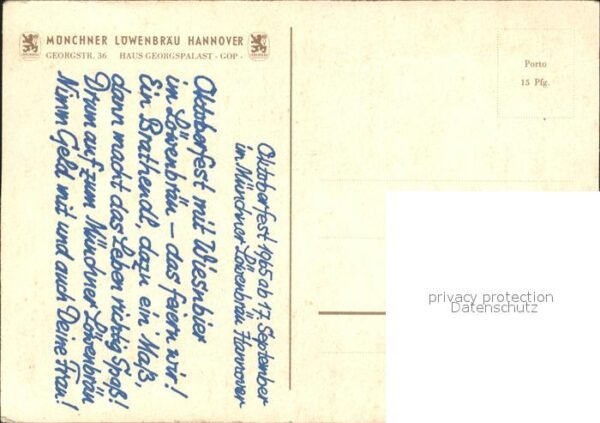 MÜNCHNER LÖWENBRÄU HANNOVER
GEORGSTR. 36 HAUS GEORGSPALAST - GOP -
Porto
15 Pfg.
Oktoberfest 1965 ab 17. September
im Münchner Löwenbräu Hannover
Oktoberfest mit Wiesnbier
im Löwenbräu – das feiern wir!
Ein Brathendl, dazu ein Maß,
dann macht das Leben richtig Spaß!
Drum auf zum Münchner Löwenbräu
Nimm Geld mit und auch Deine Frau!
privacy protection
Datenschutz